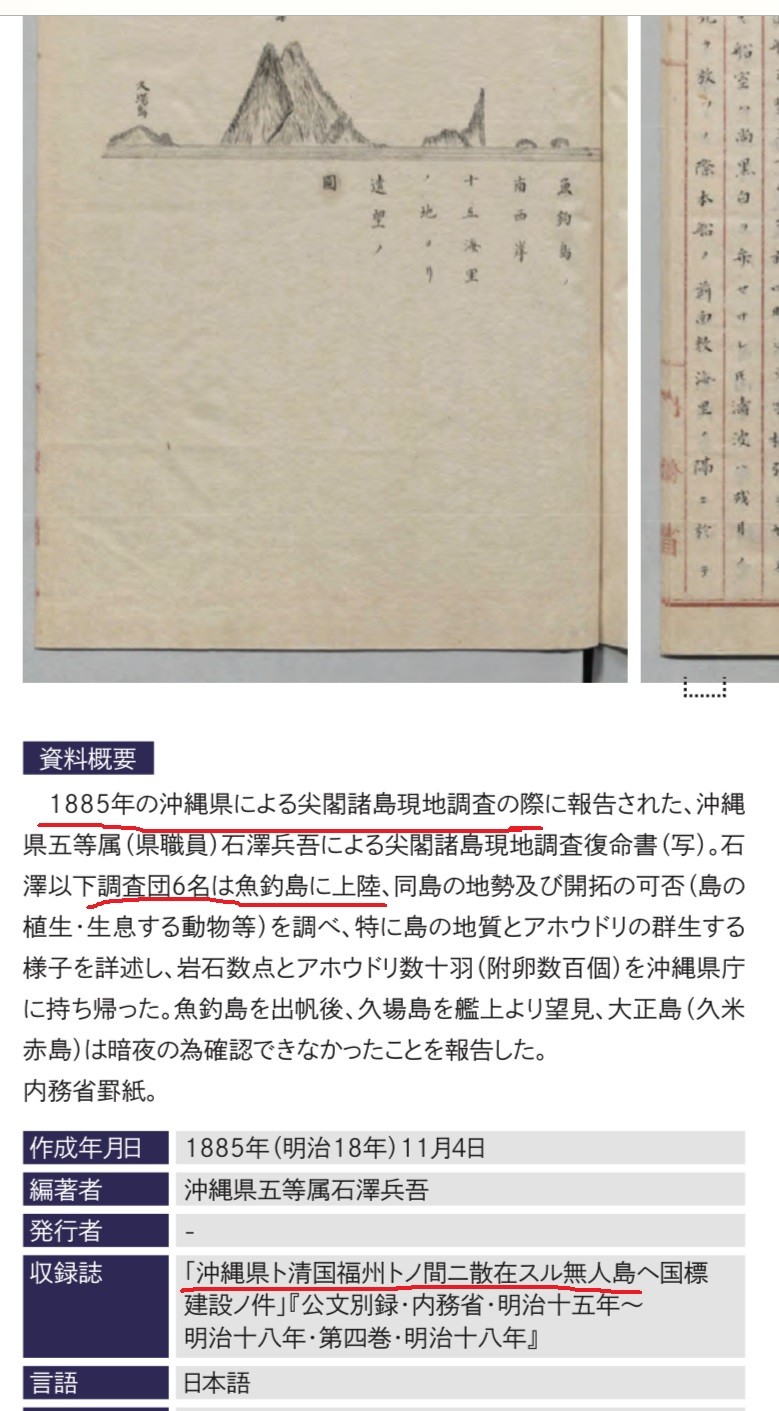 久場島
魚釣島ノ
南西岸
十五海里
ノ地ヨリ
遠望ノ
圖
船空ハ尚黒白ヲ弁セサレ氏滿波ハ残月ノ
ヲ放ノノ際本船ノ前面数海里ヲ隔ニ於テ
資料概要
1885年の沖縄県による尖閣諸島現地調査の際に報告された、沖縄
県五等属(県職員)石澤兵吾による尖閣諸島現地調査復命書(写)。石
澤以下調査団6名は魚釣島に上陸、同島の地勢及び開拓の可否(島の
植生・生息する動物等)を調べ、特に島の地質とアホウドリの群生する
様子を詳述し、岩石数点とアホウドリ数十羽(附卵数百個)を沖縄県庁
に持ち帰った。魚釣島を出帆後、久場島を艦上より望見、大正島(久米
赤島)は暗夜の為確認できなかったことを報告した。
内務省罫紙。
作成年月日 1885年(明治18年)11月4日
編著者 沖縄県五等属石澤兵吾
発行者 -
収録誌 「沖縄県ト清国福州トノ間ニ散在スル無人島ヘ国標
建設ノ件」『公文別録・内務省・明治十五年～
明治十八年・第四巻・明治十八年』
言語 日本語